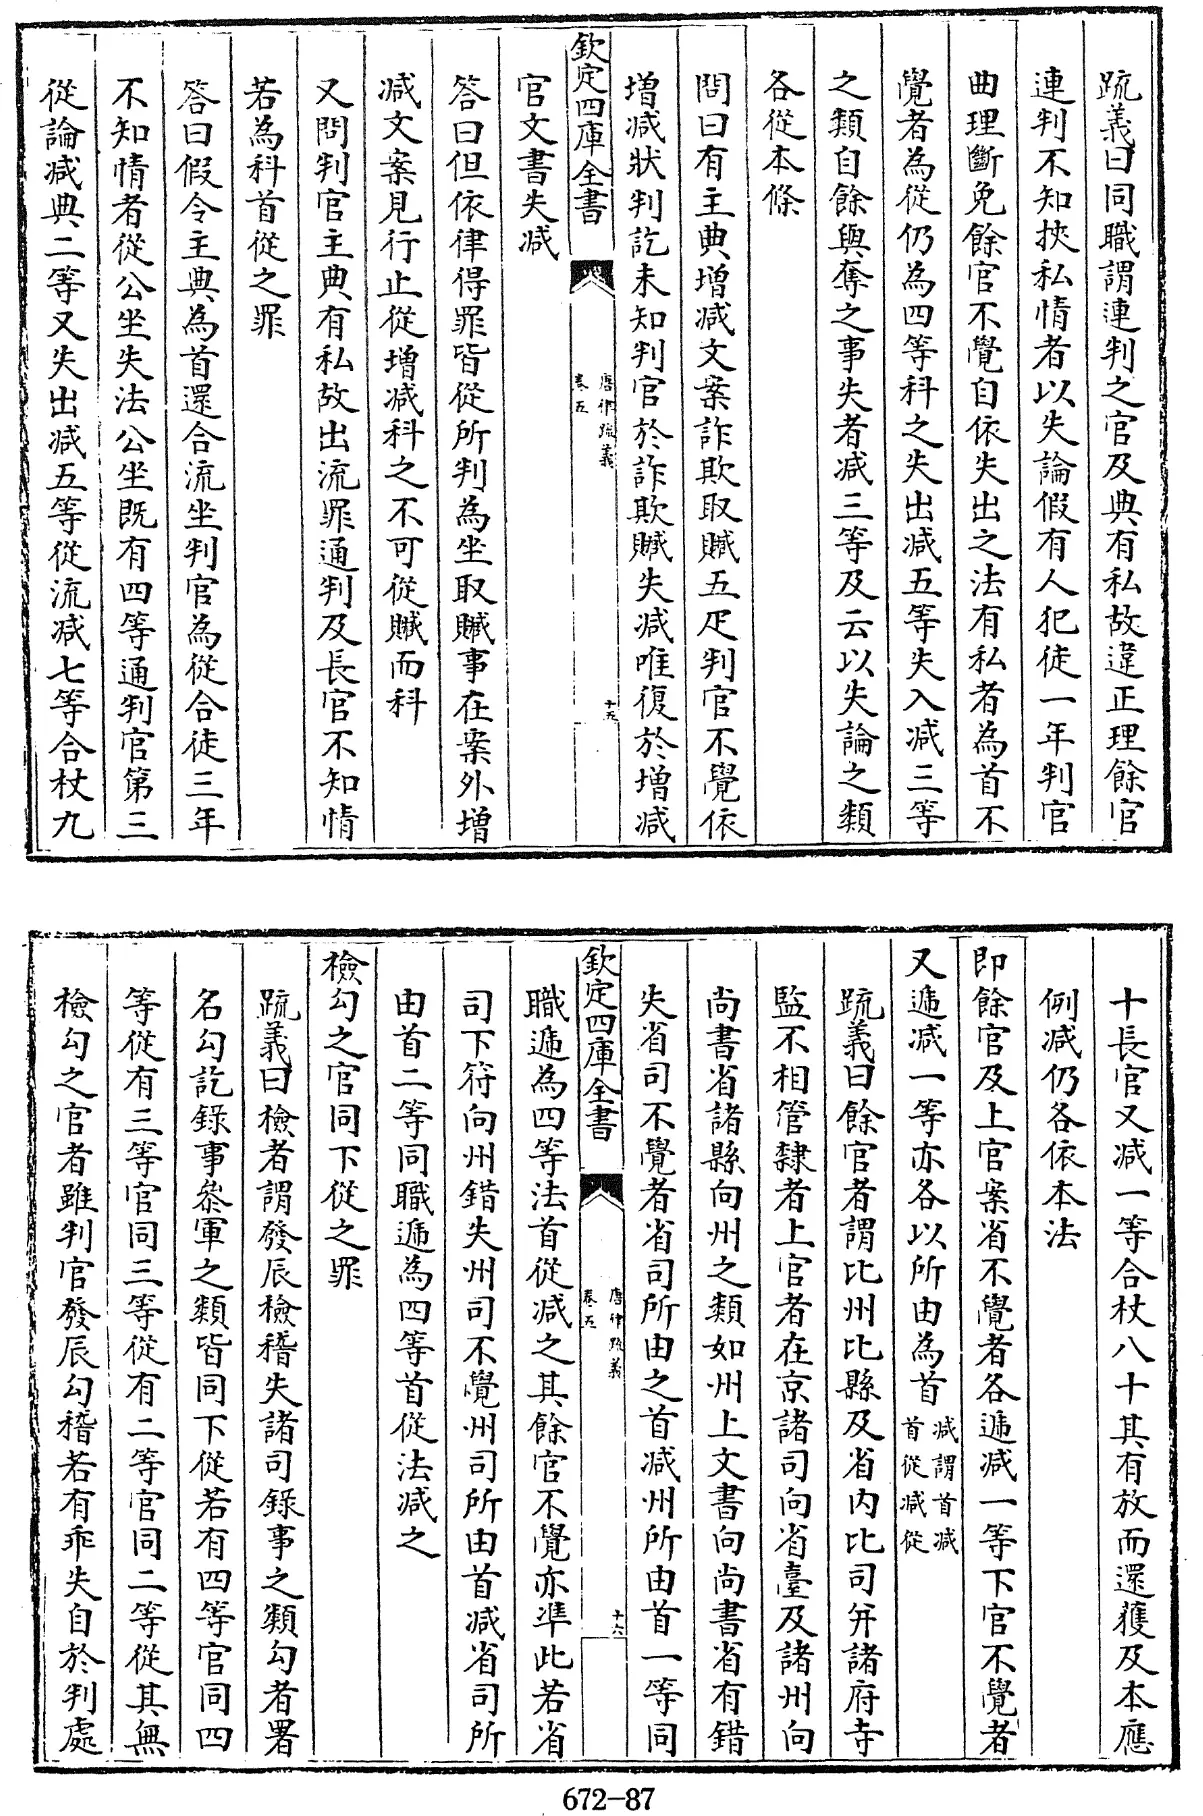 疏義曰同職謂連判之官及典有私故違正理餘官
連判不知挾私情者以失論假有人犯徒一年判官
曲理斷免餘官不覺自依失出之法有私者為首不
覺者為從仍為四等科之失出減五等失入減三等
之類自餘與奪之事失者減三等及云以失論之類
各從本條
問曰有主典增減文案詐欺取贓五疋判官不覺依
增減狀判訖未知判官於詐欺贓失減唯復於增減
欽定四庫全書
唐律疏義
卷五
十五
官文書失減
答曰但依律得罪皆從所判為坐取贓事在案外增
減文案見行止從增減科之不可從贓而科
又問判官主典有私故出流罪通判及長官不知情
若為科首從之罪
答曰假令主典為首還合流坐判官為從合徒三年
不知情者從公坐失法公坐既有四等通判官第三
從論減典二等又失出減五等從流減七等合杖九
十長官又減一等合杖八十其有放而還獲及本應
例減仍各依本法
即餘官及上官案省不覺者各遞減一等下官不覺者
又遞減一等亦各以所由為首
減謂首減
首從減從
疏義曰餘官者謂比州比縣及省內比司并諸府寺
監不相管隸者上官者在京諸司向省臺及諸州向
尚書省諸縣向州之類如州上文書向尚書省有錯
失省司不覺者省司所由之首減州所由首一等同
欽定四庫全書
唐律疏義
卷五
十六
職遞為四等法首從減之其餘官不覺亦準此若省
司下符向州錯失州司不覺州司所由首減省司所
由首二等同職遞為四等首從法減之
檢勾之官同下從之罪
疏義曰檢者謂發辰檢稽失諸司錄事之類勾者署
名勾訖錄事叅軍之類皆同下從若有四等官同四
等從有三等官同三等從有二等官同二等從其無
檢勾之官者雖判官發辰勾稽若有乖失自於判處
672-87